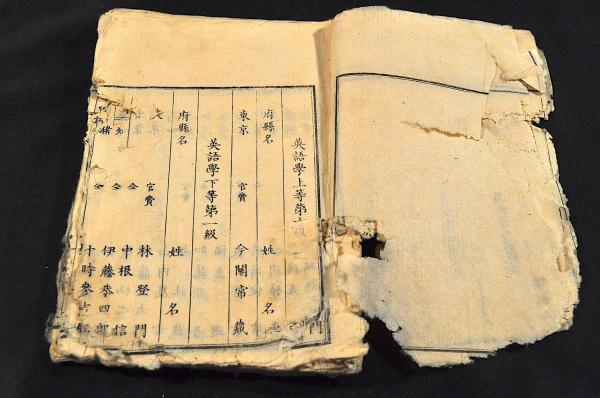 英語學上等第 級
府縣名 姓名
東京 官費 今關常藏
英語學下等第一級
府縣名 姓名
官費 林登門
仝 中根 信
仝 伊藤恭四郎
時參
門